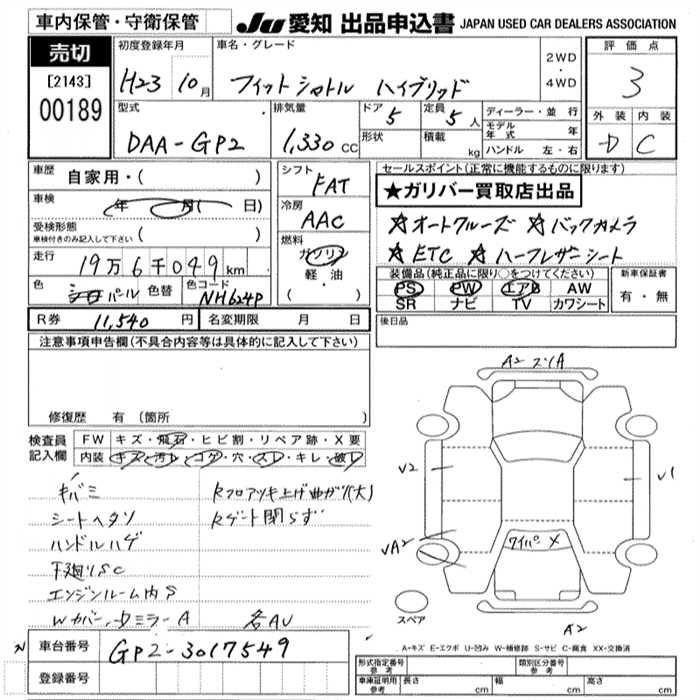 車内保管・守衛保管
JU 愛知 出品申込書 JAPAN USED CAR DEALERS ASSOCIATION
売切
[2143]
00189
初度登録年月
H23 10月
車名・グレード
フィットシャトル ハイブリッド
2WD
・
4WD
評価点
3
外装 内装
D C
型式
DAA-GP2
排気量
1,330 cc
ドア 5
定員 5 人
形状
積載 kg
ディーラー・並行
モデル年式 年
ハンドル 左・右
車歴 自家用・( )
車検 年 月( 日)
受検形態
車検付きのみ記入して下さい ( )
走行 19万6千049km
色 パール 色替 色コード NH624P
シフト
FAT
冷房
AAC
燃料
ガソリン
軽油
( ・ )
セールスポイント(正常に機能するものに限ります)
★ガリバー買取店出品
☆オートクルーズ ☆バックカメラ
☆ETC ☆ハーフレザーシート
装備品(純正品に限り○をつけてください)
PS PW エアB AW
SR ナビ TV カワシート
新車保証書
有・無
R券 11,540 円 名変期限 月 日
後日品
注意事項申告欄(不具合内容等は具体的に記入して下さい)
修復歴 有(箇所 )
検査員記入欄
FW キズ・飛石・ヒビ割・リペア跡・X要
内装 キズ・汚レ・コゲ・穴・スレ・キレ・破レ
キバミ
シートヘタリ
ハンドルハゲ
下廻りSC
エンジンルーム内S
Wカバー、DミラーA 各AU
Rフロアツキ上げ曲がり(大)
Rゲート閉らず
A2 ズレA
V2
V1
VA2
ワイパーX
スペア
A2
A-キズ E-エクボ U-凹み W-補修跡 S-サビ C-腐食 XX-交換済
車台番号 GP2-3017549
登録番号
形式指定番号 参考
類別区分番号 参考
車庫証明用 参考 長さ cm 幅 cm 高さ cm